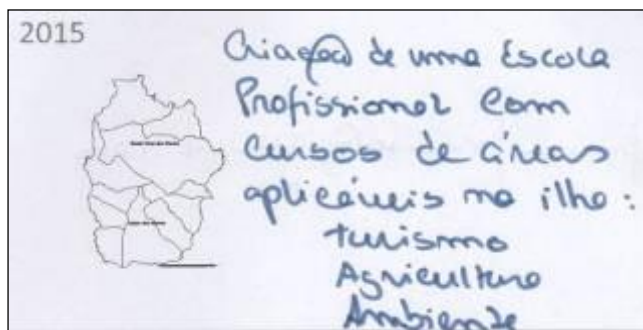 2015
Criação de uma Escola
Profissional com
cursos de áreas
aplicáveis na ilha:
turismo
Agricultura
Ambiente